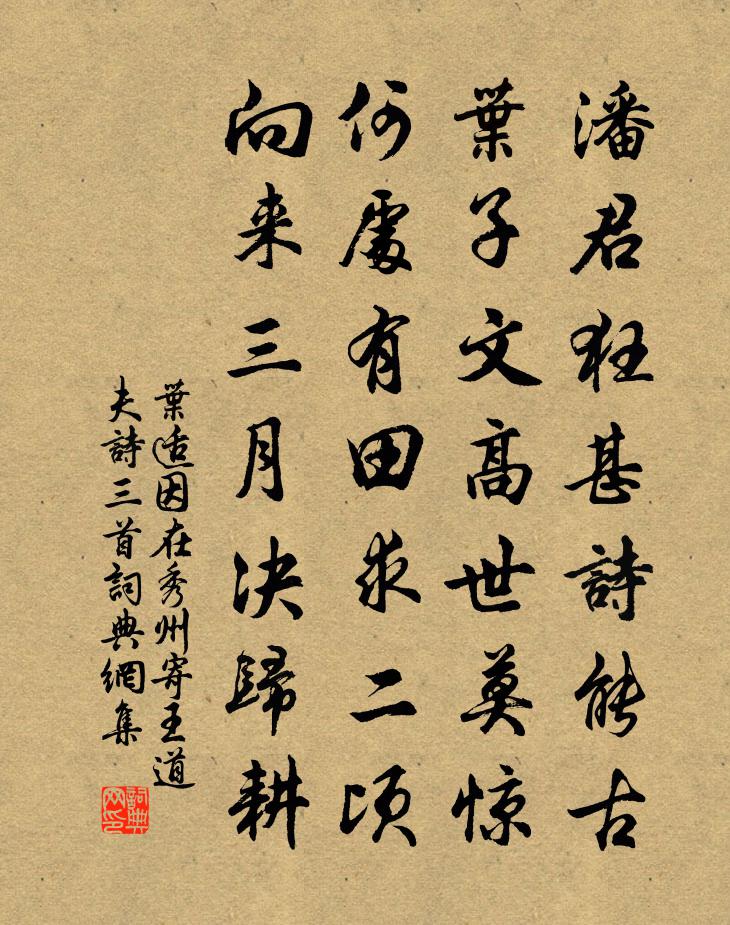 潘君狂甚詩能古
葉子文高世莫惊
何處有田求二頃
向来三月决歸耕
葉适因在秀州寄王道
夫詩三首詞典網集
詞典网印